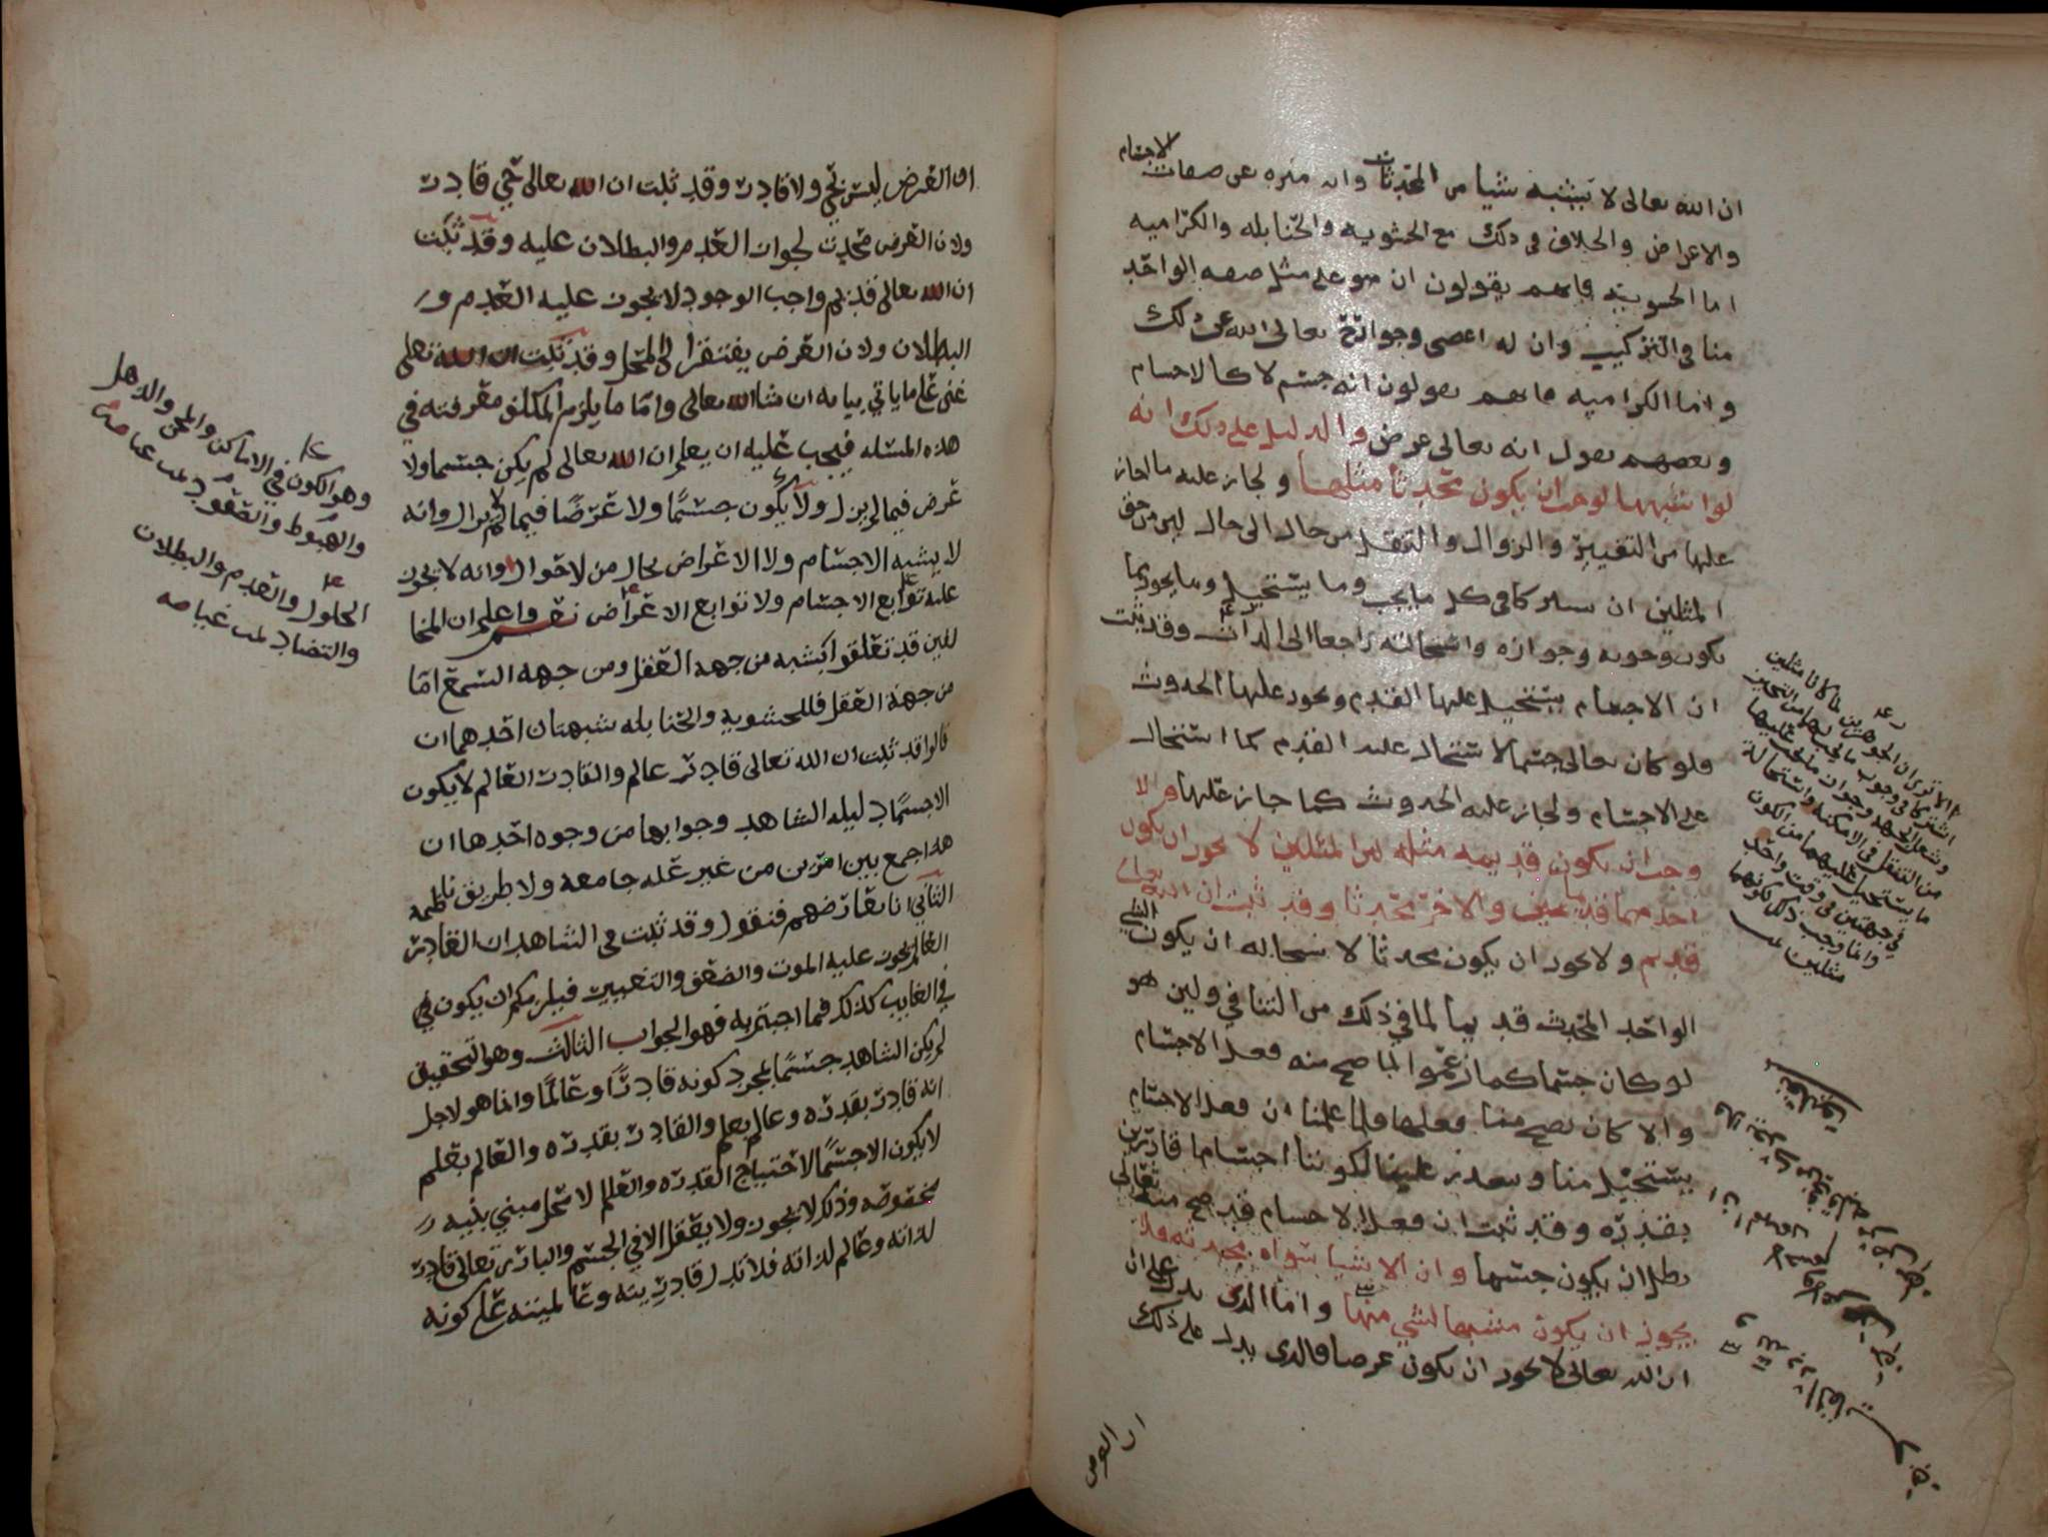 ان الله تعالى لا يشبه شيا من المحدثات وانه منزه عن صفات الاجسام
والاعراض والخلاف في ذلك مع الحشويه والحنابله والكراميه
اما الحشويه فانهم يقولون ان هو على مثل صفه الواحد
منا في التركيب وان له اعضى وجوارح تعالى الله عن ذلك
واما الكراميه فانهم يقولون انه جسم لا كالاجسام
وبعضهم يقول انه تعالى عرض والدليل على ذلك انه
لو اشبهها لوجب ان يكون محدثا مثلها ولجاز عليه ما جاز
عليها من التغيير والزوال والتنقل من حال الى حال لان من حق
المثلين ان يشتركا في كل ما يجب وما يستحيل وما يجوز مما
يكون وجوبه وجوازه واستحالته راجعا الى الذات وقد ثبت
ان الاجسام يستحيل عليها القدم ويجوز عليها الحدوث
فلو كان تعالى جسما لاستحال عليه القدم كما استحال
على الاجسام ولجاز عليه الحدوث كما جاز عليها ولا
وجب ان يكون قديمه مثله لان المثلين لا يجوز ان يكون
احدهما قديما والاخر محدثا وقد ثبت ان الله تعالى
قديم ولا يجوز ان يكون محدثا لاستحاله ان يكون الشي
الواحد المحدث قديما لما في ذلك من التنافي ولان هو
لو كان جسما كما زعموا لما صح منه فعل الاجسام
والا كان يصح منا فعلها ولما علمنا ان فعل الاجسام
يستحيل منا ويتعذر علينا لكوننا اجساما قادرين
بقدره وقد ثبت ان فعل الاجسام قد صح منه تعالى
بطل ان يكون جسما وان الاشيا سواه محدثه فلا
يجوز ان يكون مشبها لشي منها واما الذي يدل على ان
ان الله تعالى لا يجوز ان يكون عرضا فالذي يدل على ذلك
ان العرض
الا ترى ان الجوهرين لما كانا مثلين
اشتركا في وجوب ما يجب لهما من التحيز
وشغل الجهه وجواز ما يجوز عليهما
من التنقل في الامكنه واستحالة
ما يستحيل عليهما من الكون
في جهتين في وقت واحد
وانما وجب ذلك لكونهما
مثلين
ان العرض ليس بحي ولا قادر وقد ثبت ان الله تعالى حي قادر
ولان العرض محدث لجواز العدم والبطلان عليه وقد ثبت
ان الله تعالى قديم واجب الوجود لا يجوز عليه العدم و
البطلان ولان العرض يفتقر الى المحل وقد ثبت ان الله تعالى
غني على ما ياتي بيانه ان شا الله تعالى واما ما يلزم المكلف معرفته في
هذه المسئله فيجب عليه ان يعلم ان الله تعالى لم يكن جسما ولا
عرض فيما لم يزل ولا يكون جسمًا ولا عرضًا فيما لا يزال وانه
لا يشبه الاجسام ولا الاعراض بحال من لاحوال وانه لا يجوز
عليه توابع الاجسام ولا توابع الاعراض نعم واعلم ان المخا
لفين قد تعلقوا بشبه من جهه العقل ومن جهه السمع اما
من جهة العقل فللحشويه والحنابله شبهتان احدهما ان
قالوا قد ثبت ان الله تعالى قادر عالم والقادر العالم لا يكون
الا جسمًا دليله الشاهد وجوابها من وجوه احدها ان
هذا جمع بين امرين من غير عله جامعه ولا طريق ناظمه
الثاني انا نعارضهم فنقول وقد ثبت في الشاهد ان القادر
العالم يجوز عليه الموت والضعف والتغيير فيلزمكم ان يكون في
في الغايب كذلك فما اجبتم به فهو الجواب الثالث وهو التحقيق
لم يكن الشاهد جسمًا لمجرد كونه قادرًا وعالمًا وانما هو لاجل
انه قادر بقدره وعالم بعلم والقادر بقدره والعالم بعلم
لا يكون الا جسمًا لاحتياج القدره والعلم لا محل مبني بنيه
مخصوصه وذلك لا يجوز ولا يعقل الا في الجسم والباري تعالى قادر
لذاته وعالم لذاته فلا تدل قادريته وعالميته على كونه
وهو الكون في الاماكن
والهبوط والصعود
الحلول والعدم والبطلان
والتضاد